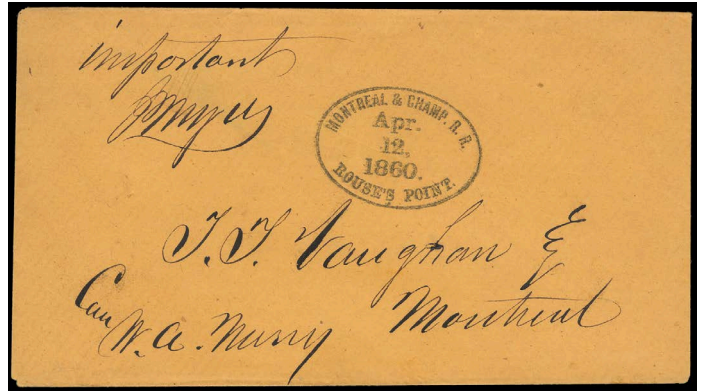 important
MONTREAL & CHAMP. R. R.
Apr.
12,
1860.
ROUSE'S POINT.
J. J. Vaughan Esq
Montreal
W. A. Merry